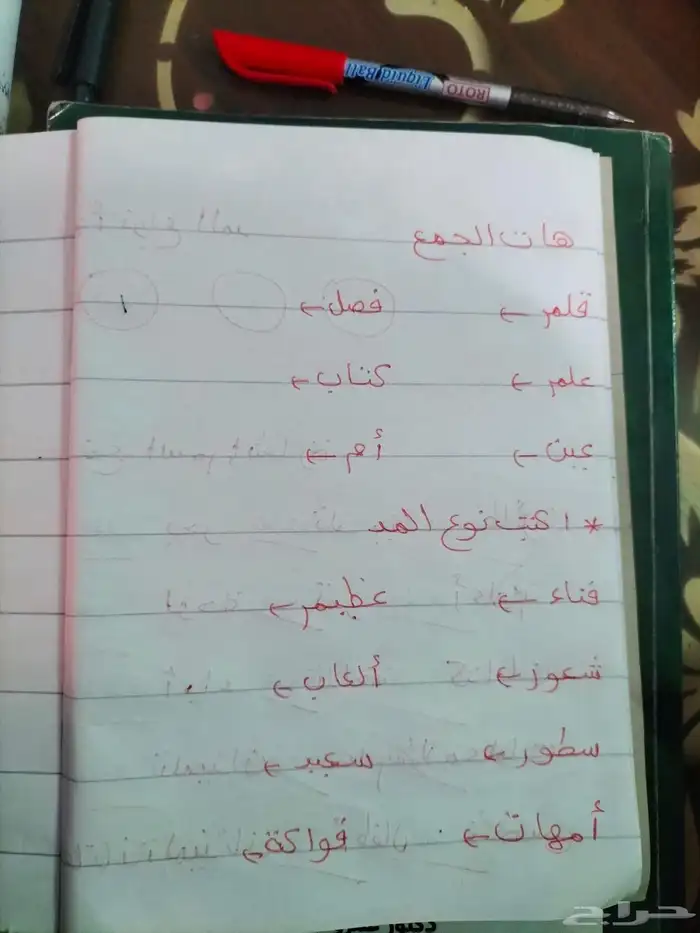 ROTO Liquid Ball
هات الجمع
قلم ← فصل ←
علم ← كتاب ←
عين ← أم ←
* اكتب نوع المد
فناء ← عظيم ←
شعوز ← ألعاب ←
سطور ← سعيد ←
أمهات ← فواكة ←
حراج